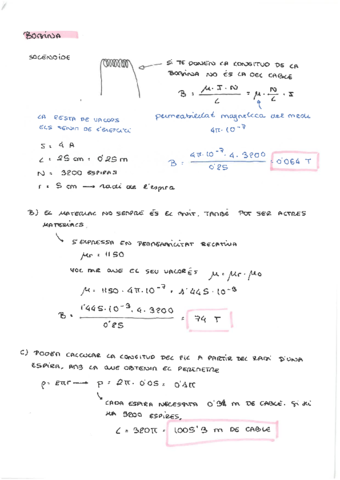 BOBINA
SOLENOIDE
SI TE DONEN LA LONGITUD DE LA
BOBINA NO ÉS LA DEL CABLE
B = μ · I · N / L = μ · N / L · I
LA RESTA DE VALORS
ELS TENIM DE L'EXERCICI
permeabilitat magnètica del medi
4π·10⁻⁷
I = 4 A
L = 25 cm = 0'25 m
N = 3200 ESPIRES
r = 5 cm → radi de l'espira
B = 4π·10⁻⁷ · 4 · 3200 / 0'25 = 0'064 T
B) EL MATERIAL NO SEMPRE ÉS EL BUIT, TAMBÉ POT SER ALTRES
MATERIALS.
S'EXPRESSA EN PERMEABILITAT RELATIVA
μr = 1150
VOL DIR QUE EL SEU VALOR ÉS μ = μr · μ0
μ = 1150 · 4π·10⁻⁷ = 1'445·10⁻³
B = 1'445·10⁻³ · 4 · 3200 / 0'25 = 74 T
C) PODEM CALCULAR LA LONGITUD DEL FIL A PARTIR DEL RADI D'UNA
ESPIRA, AMB LA QUE OBTENIM EL PERÍMETRE
p = 2πr → p = 2π · 0'05 = 0'1π
CADA ESPIRA NECESSITA 0'31 m DE CABLE. SI HI
HA 3200 ESPIRES,
L = 320π = 1005'3 m DE CABLE